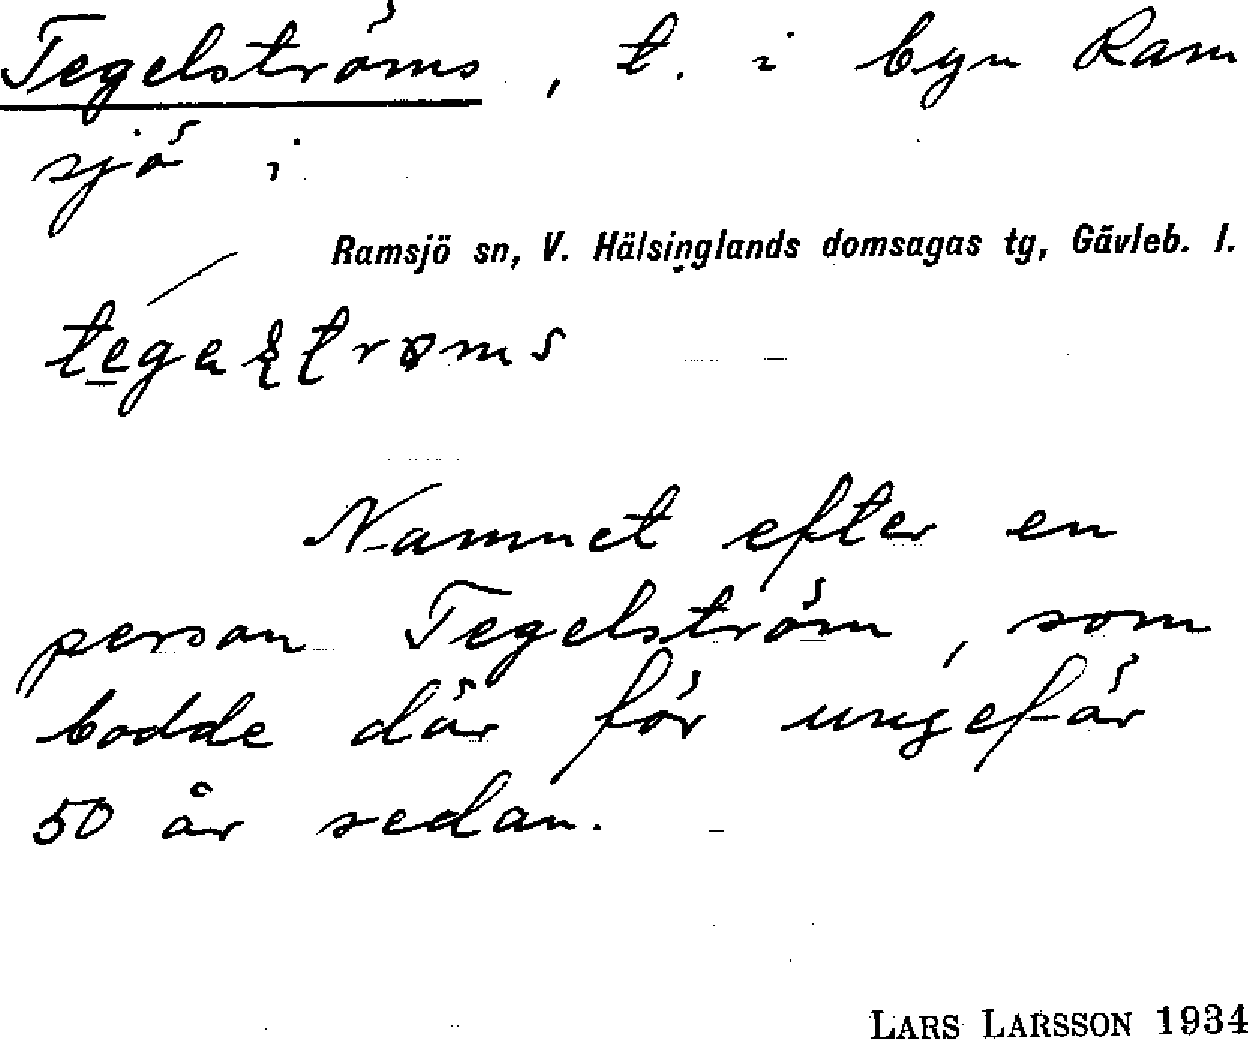 Tegelströms, t. i byn Ram
sjö i
Ramsjö sn, V. Hälsinglands domsagas tg, Gävleb. l.
Namnet efter en
person Tegelström, som
bodde där för ungefär
50 år sedan.
LARS LARSSON 1934